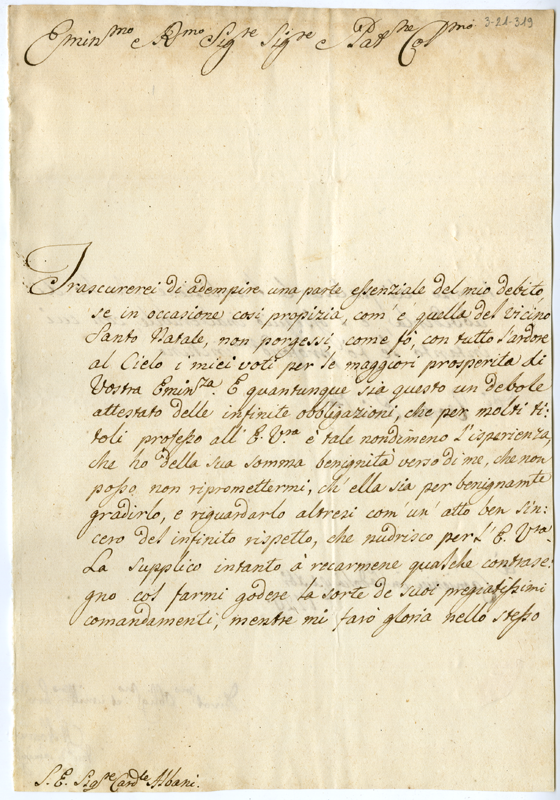 3-21-319
Emin.mo e R.mo Sig.re Sig.re e Pat.ne Col.mo
Trascurerei di adempire una parte essenziale del mio debito,
se in occasione così propizia com'è quella del vicino
Santo Natale, non porgessi, come fò, con tutto l'ardore
al Cielo i miei voti per le maggiori prosperità di
Vostra Emin.za. E quantunque sia questo un debole
attestato delle infinite obbligazioni, che per molti ti:
toli professo all'E. V.ra è tale nondimeno l'isperienza,
che ho della sua somma benignità verso di me, che non
posso non ripromettermi, ch'ella sia per benignam.te
gradirlo, e riguardarlo altresì com'un'atto ben sin:
cero del infinito rispetto, che nudrisco per l'E. V.ra.
La supplico intanto à recarmene qualche contrase:
gno col farmi godere la sorte de suoi pregiatissimi
comandamenti, mentre mi farò gloria nello stesso
S. E. Sig.re Card.le Albani.